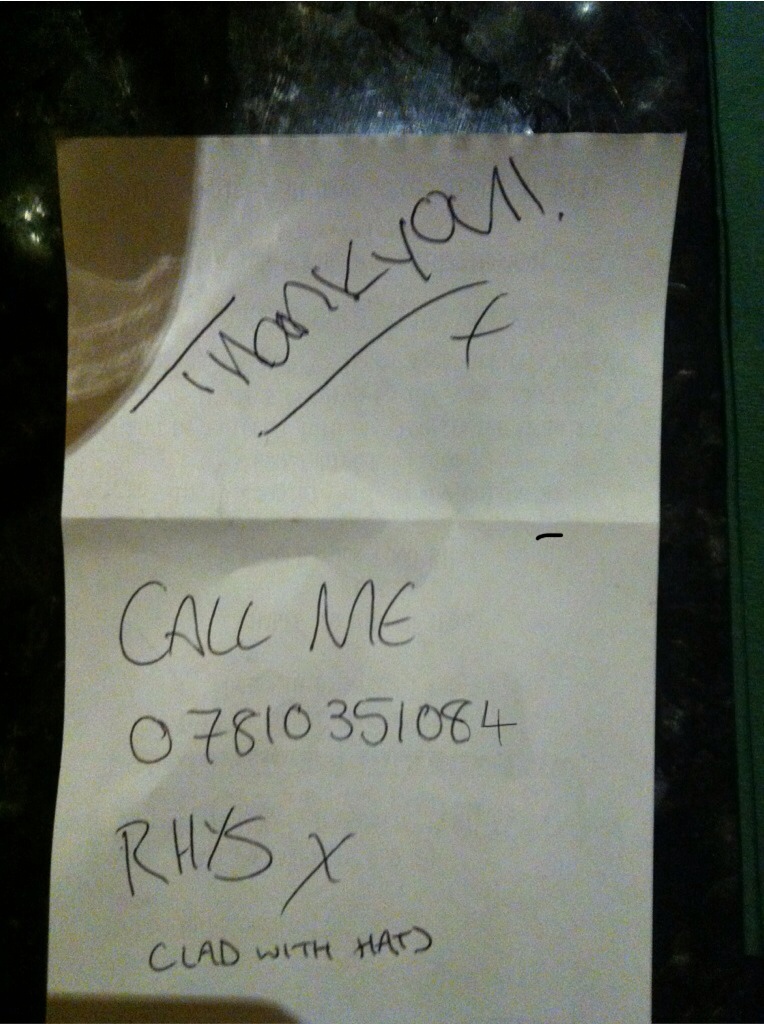 Thank you!!
x
CALL ME
07810351084
RHYS x
(LAD WITH HAT)